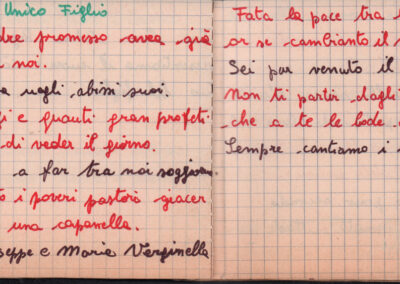 Unico Figlio
dre promesso avea già
noi.
a negli abissi suoi.
i e quanti gran profeti
di veder il giorno.
a far tra noi soggiorn
o i poveri pastori giacer
una capannella.
seppe e Maria Verginella
Fata la pace tra
or se cambianto il
Sei pur venuto il
Non ti partir dagli
che a te le lode
Sempre cantiamo i